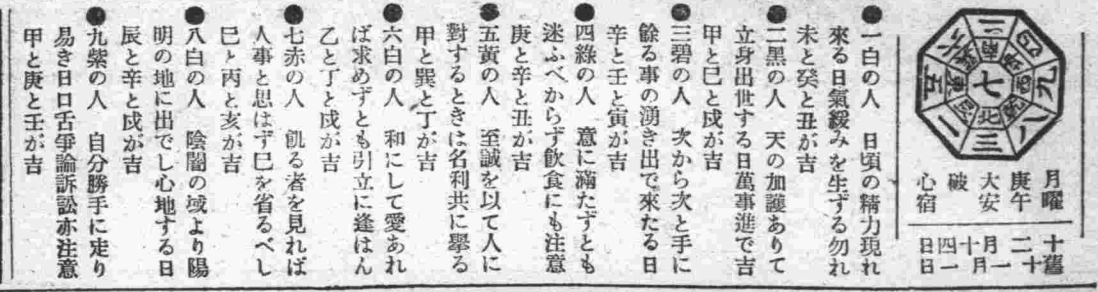 七
北
九
八
三
一
五
六
二
月曜
庚午
大安
破
心宿
十二月十四日
舊十一月一日
●一白の人　日頃の精力現れ
來る日氣緩みを生ずる勿れ
未と癸と丑が吉
●二黑の人　天の加護ありて
立身出世する日萬事進で吉
甲と巳と戌が吉
●三碧の人　次から次と手に
餘る事の湧き出で來たる日
辛と壬と寅が吉
●四綠の人　意に滿たずとも
迷ふべからず飮食にも注意
庚と辛と丑が吉
●五黃の人　至誠を以て人に
對するときは名利共に擧る
甲と巽と丁が吉
●六白の人　和にして愛あれ
ば求めずとも引立に逢はん
乙と丁と戌が吉
●七赤の人　飢る者を見れば
人事と思はず巳を省るべし
巳と丙と亥が吉
●八白の人　陰闇の域より陽
明の地に出でし心地する日
辰と辛と戌が吉
●九紫の人　自分勝手に走り
易き日口舌爭論訴訟亦注意
甲と庚と壬が吉